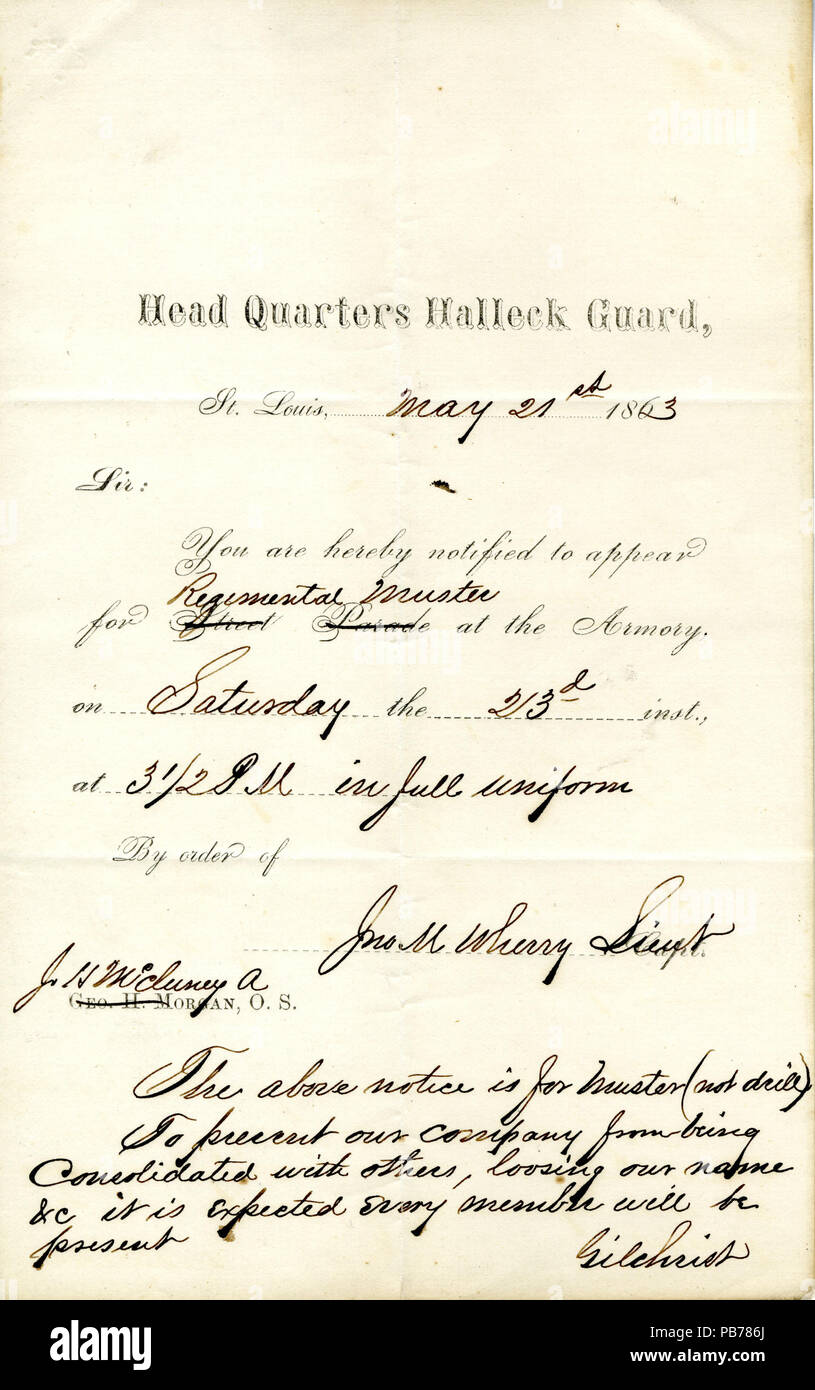 Head Quarters Halleck Guard,
St. Louis, May 21st 1863
Sir:
You are hereby notified to appear
Regimental Muster
for Street Parade at the Armory.
on Saturday the 23d inst.,
at 3 1/2 P M in full uniform
By order of
Jno M Wherry Lieut Capt.
J H McCluney A
Geo. H. Morgan, O. S.
The above notice is for Muster (not drill)
To prevent our company from being
Consolidated with others, loosing our name
&c it is expected every member will be
present
Gilchrist
alamy
Image ID: PB786J
www.alamy.com